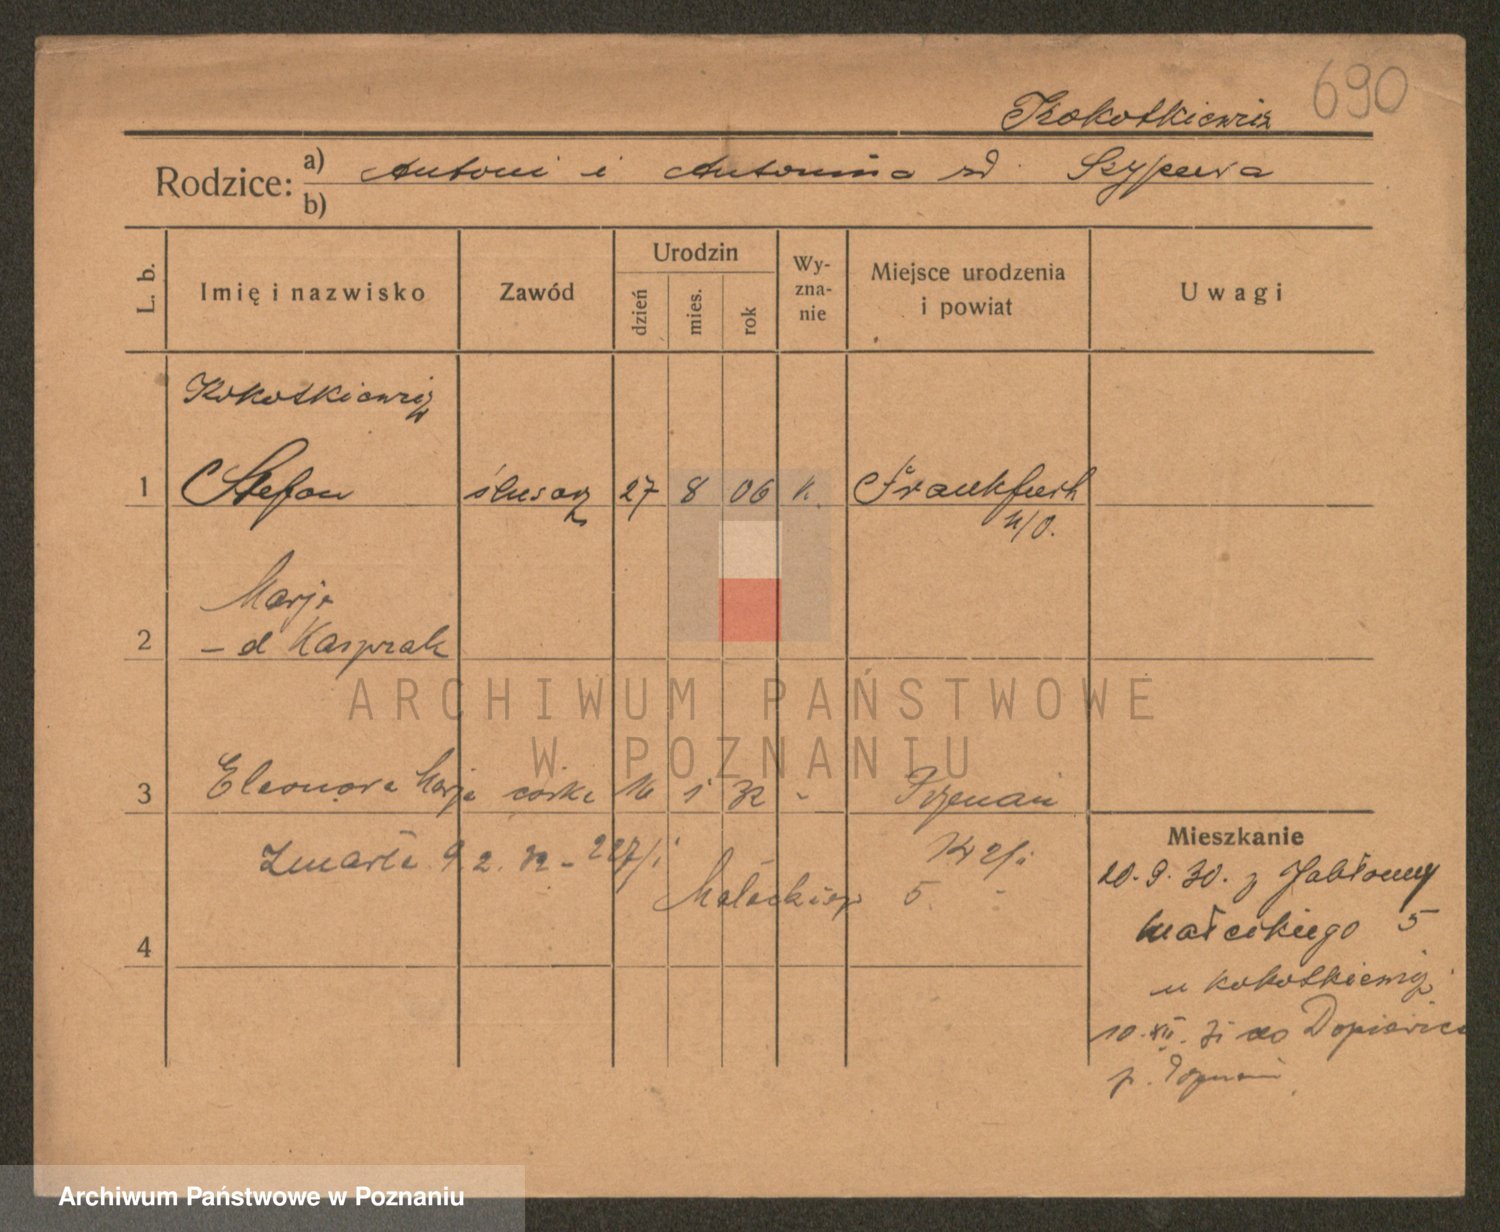 690
Kokotkiewicz
Rodzice: a) Antoni i Antonina
b)
L. b.
Imię i nazwisko
Zawód
Urodzin
dzień
mies.
rok
Wy-
zna-
nie
Miejsce urodzenia
i powiat
Uwagi
Kokotkiewicz
1 Stefan ślusarz 27 8 06 k. Frankfurth
n/O.
Marja
2 – d Kasprzak
3 Eleonora Marja córka 16 1 32 - Poznań
Zmarła 9 2. 32 – 227/i
Małeckiego 5
4
Mieszkanie
20. 9. 30. z Jabłonny
Małeckiego 5
u Kokotkiewicz
10. XII. 31 do Dopiewiec
p. Poznań
ARCHIWUM PAŃSTWOWE
W POZNANIU
Archiwum Państwowe w Poznaniu